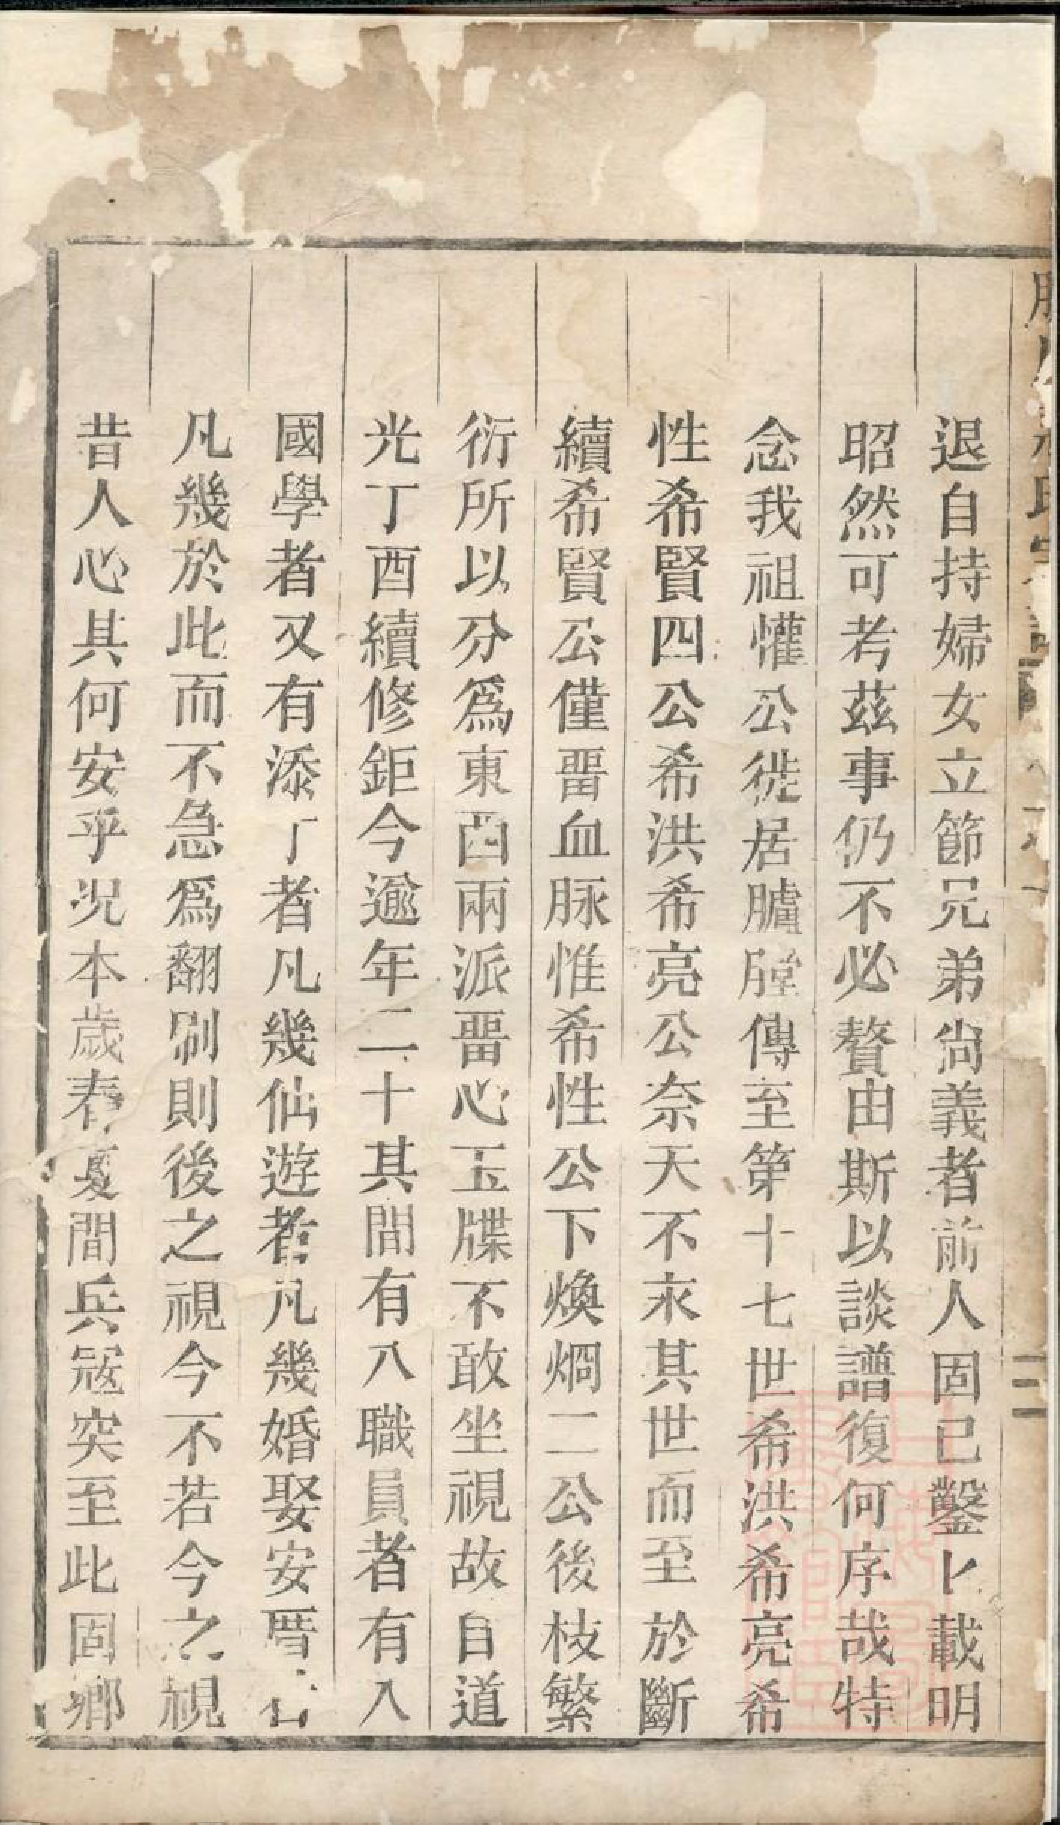 退自持婦女立節兄弟尙義者前人固已鑿卜載明
昭然可考茲事仍不必贅由斯以談譜復何序哉特
念我祖懽公徙居臚膛傳至第十七世希洪希亮希
性希賢四公希洪希亮公奈天不永其世而至於斷
續希賢公僅畱血脉惟希性公下煥烱二公後枝繁
衍所以分爲東西兩派畱心玉牒不敢坐視故自道
光丁酉續修鉅今逾年二十其間有入職員者有入
國學者又有添丁者凡幾仙遊者凡幾婚娶安厝
凡幾於此而不急爲翻刷則後之視今不若今之視
昔人心其何安乎况本歲春夏間兵寇突至此固鄉